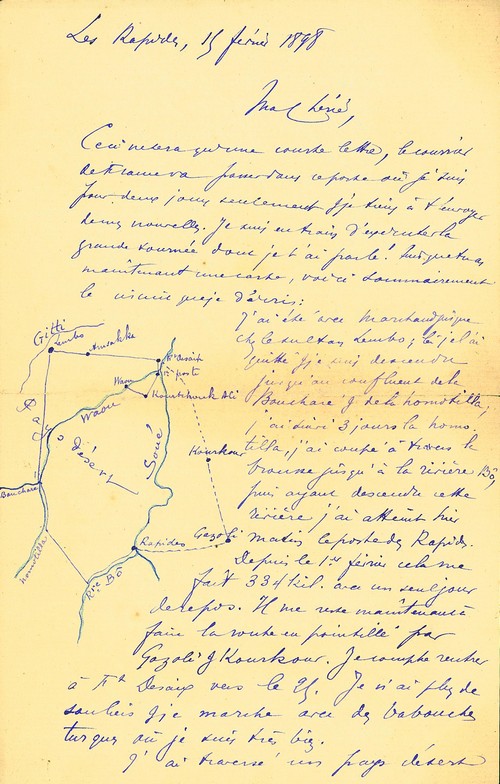 Les Rapides, 15 février 1898
Ma Chérie,
Ceci ne sera qu'une courte lettre, le courrier
de va passer dans ce poste où je suis
pour deux jours seulement & je tiens à t'envoyer
de mes nouvelles. Je suis en train d'exécuter la
grande tournée dont je t'ai parlé. Puisque tu as
maintenant une carte, voici sommairement
le que je décris :
J'ai été avec Marchand jusque
chez le sultan Tembo ; là je l'ai
quitté & je suis descendu
jusqu'au confluent de la
Boucharé & de la Homotilla ;
j'ai suivi 3 jours la Homo-
tilla, j'ai coupé à travers la
brousse jusqu'à la rivière Bô,
puis ayant descendu cette
rivière j'ai atteint hier
matin le poste des Rapides.
Depuis le 1er février cela me
fait 331 kil. avec un seul jour
de repos. Il me reste maintenant à
faire la route en pointillé par
Gozoli & Kourkour. Je compte rentrer
à Ft Desaix vers le 25. Je n'ai plus de
souliers & je marche avec des babouches
turques où je suis très bien.
J'ai traversé un pays désert
Gitti
Tembo
Amrakka
Ft Desaix
Waou
Kourchouk Ali
Pays
Waou
désert
Soué
Kourkour
Boucharé
Homotilla
Rapides
Gozoli
Rre Bô